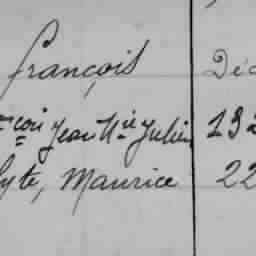 françois Déc
çois Jean Mie Julien 132
lyte, Maurice 22